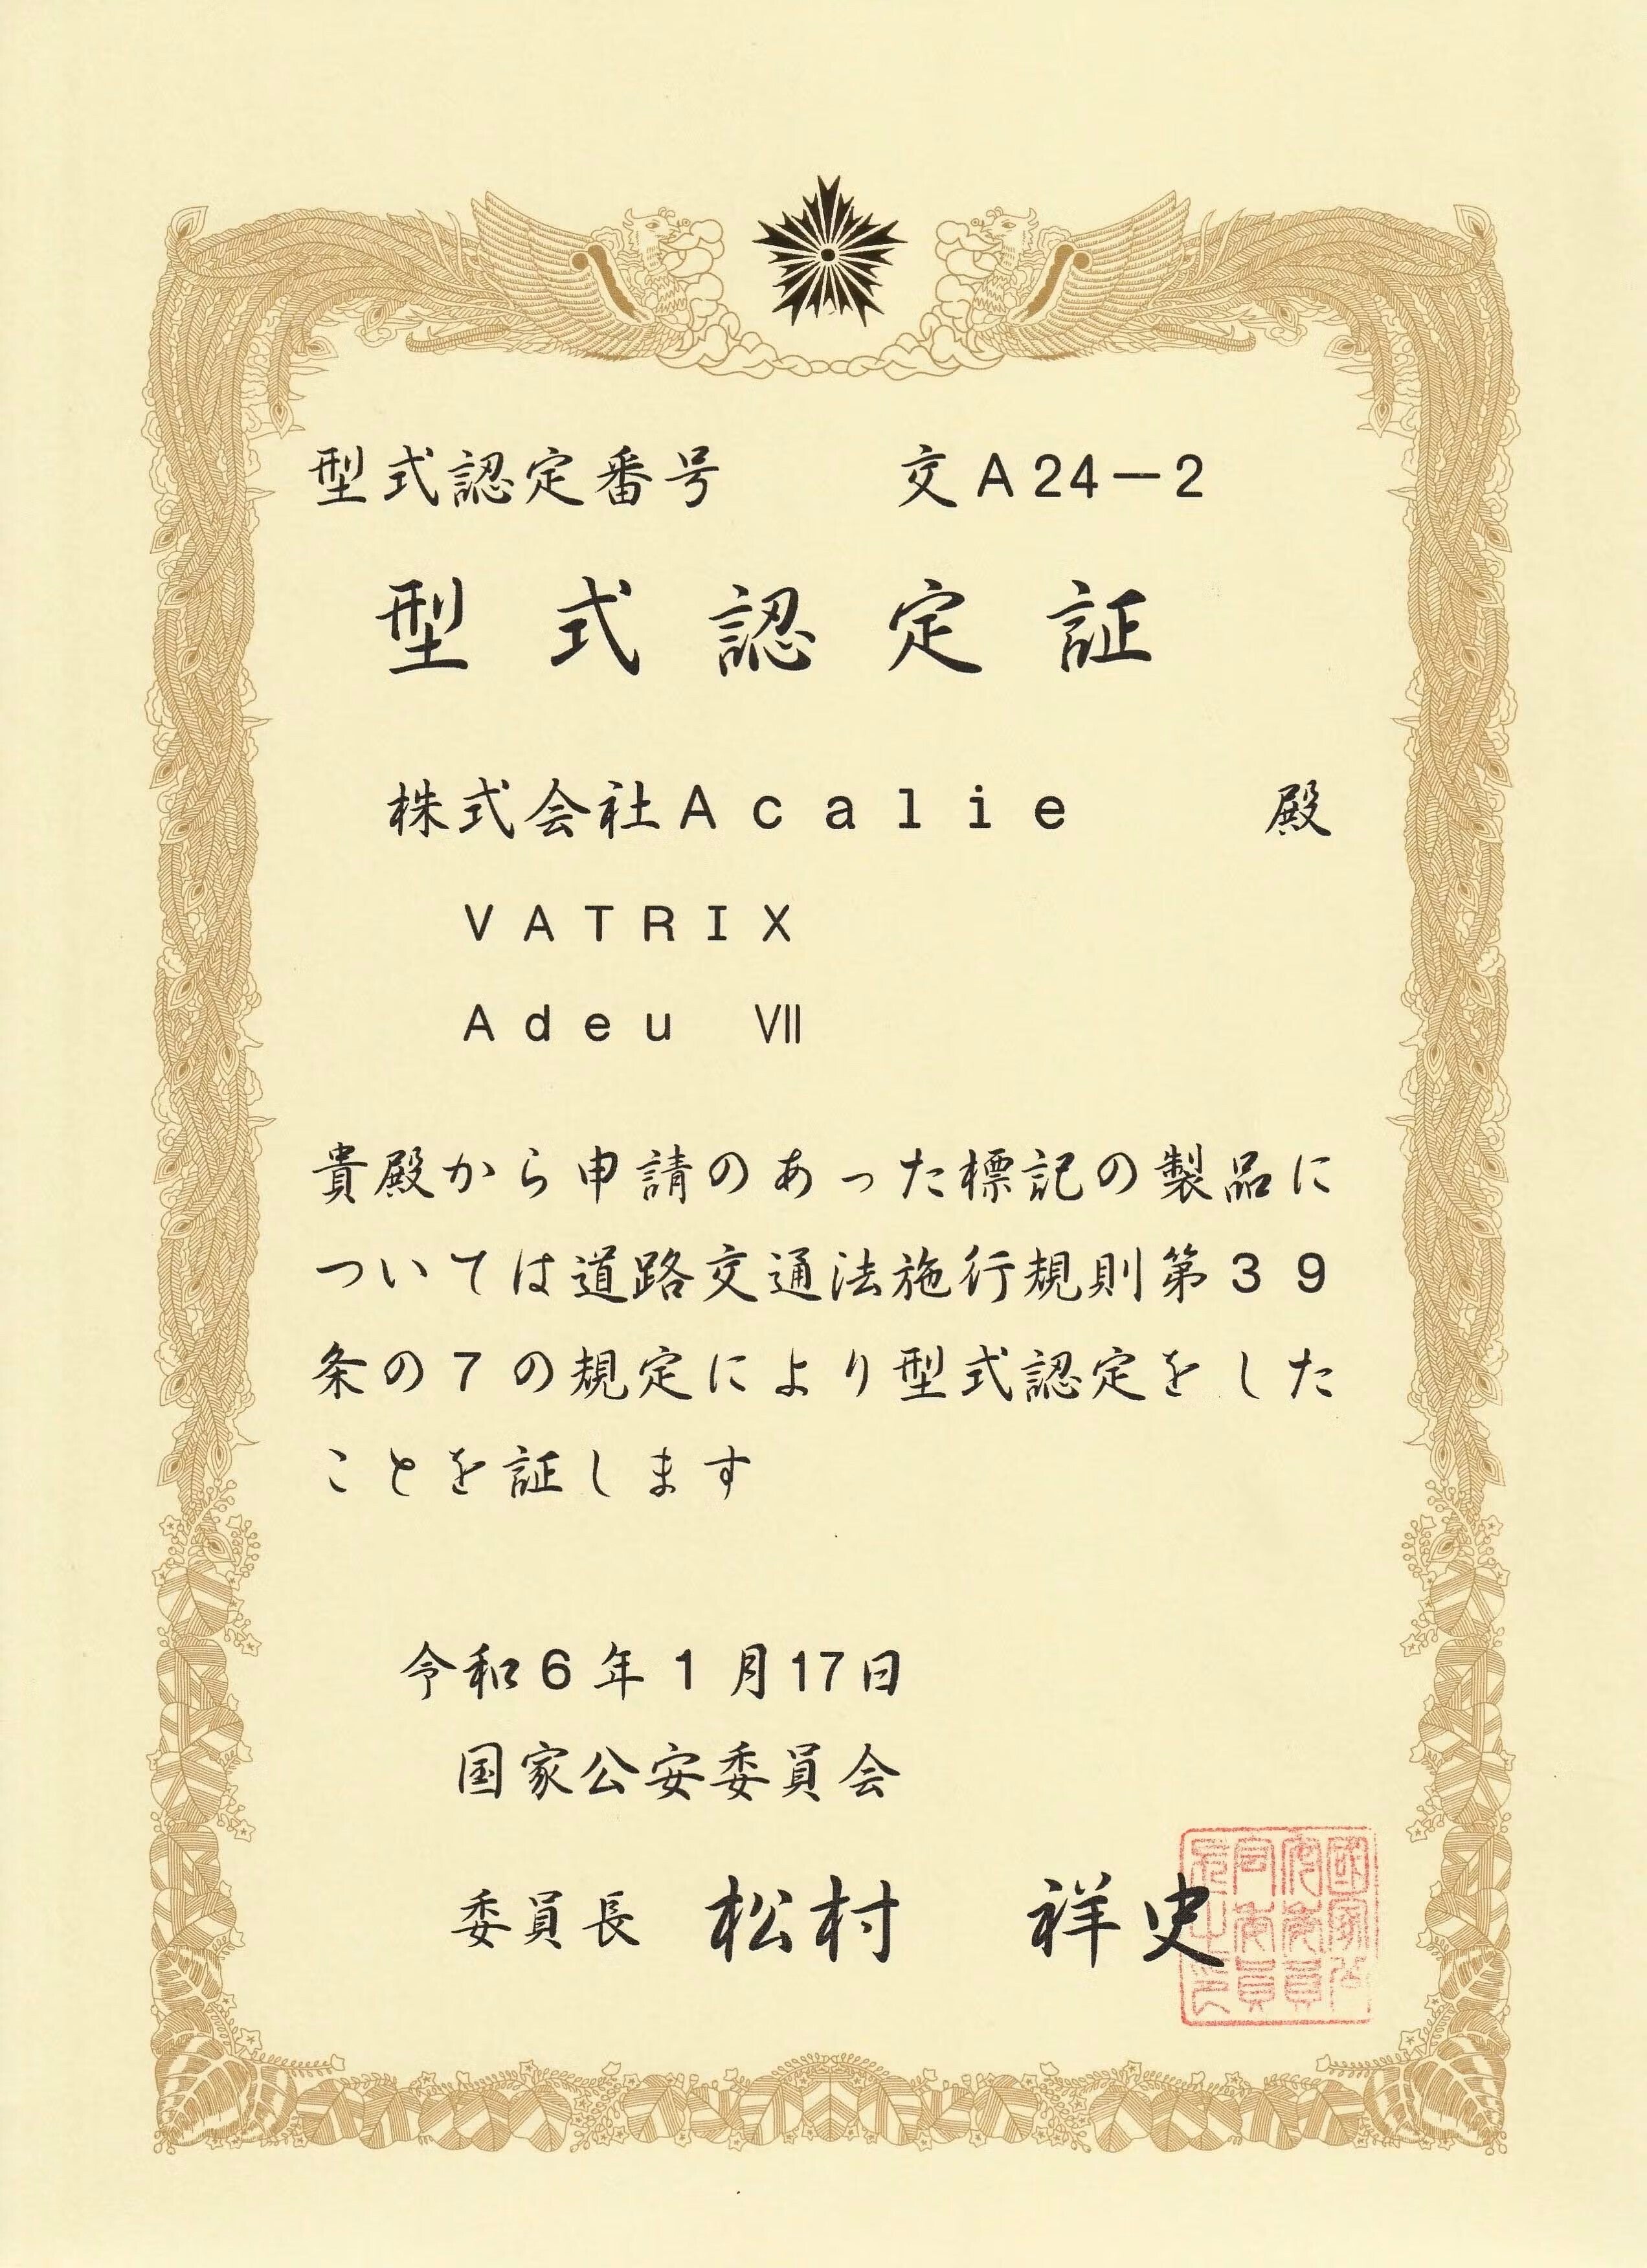 型式認定番号　交A24－2
型式認定証
株式会社Ａｃａｌｉｅ　殿
ＶＡＴＲＩＸ
Ａｄｅｕ　Ⅶ
貴殿から申請のあった標記の製品に
ついては道路交通法施行規則第３９
条の７の規定により型式認定をした
ことを証します
令和６年１月17日
国家公安委員会
委員長　松村　祥史